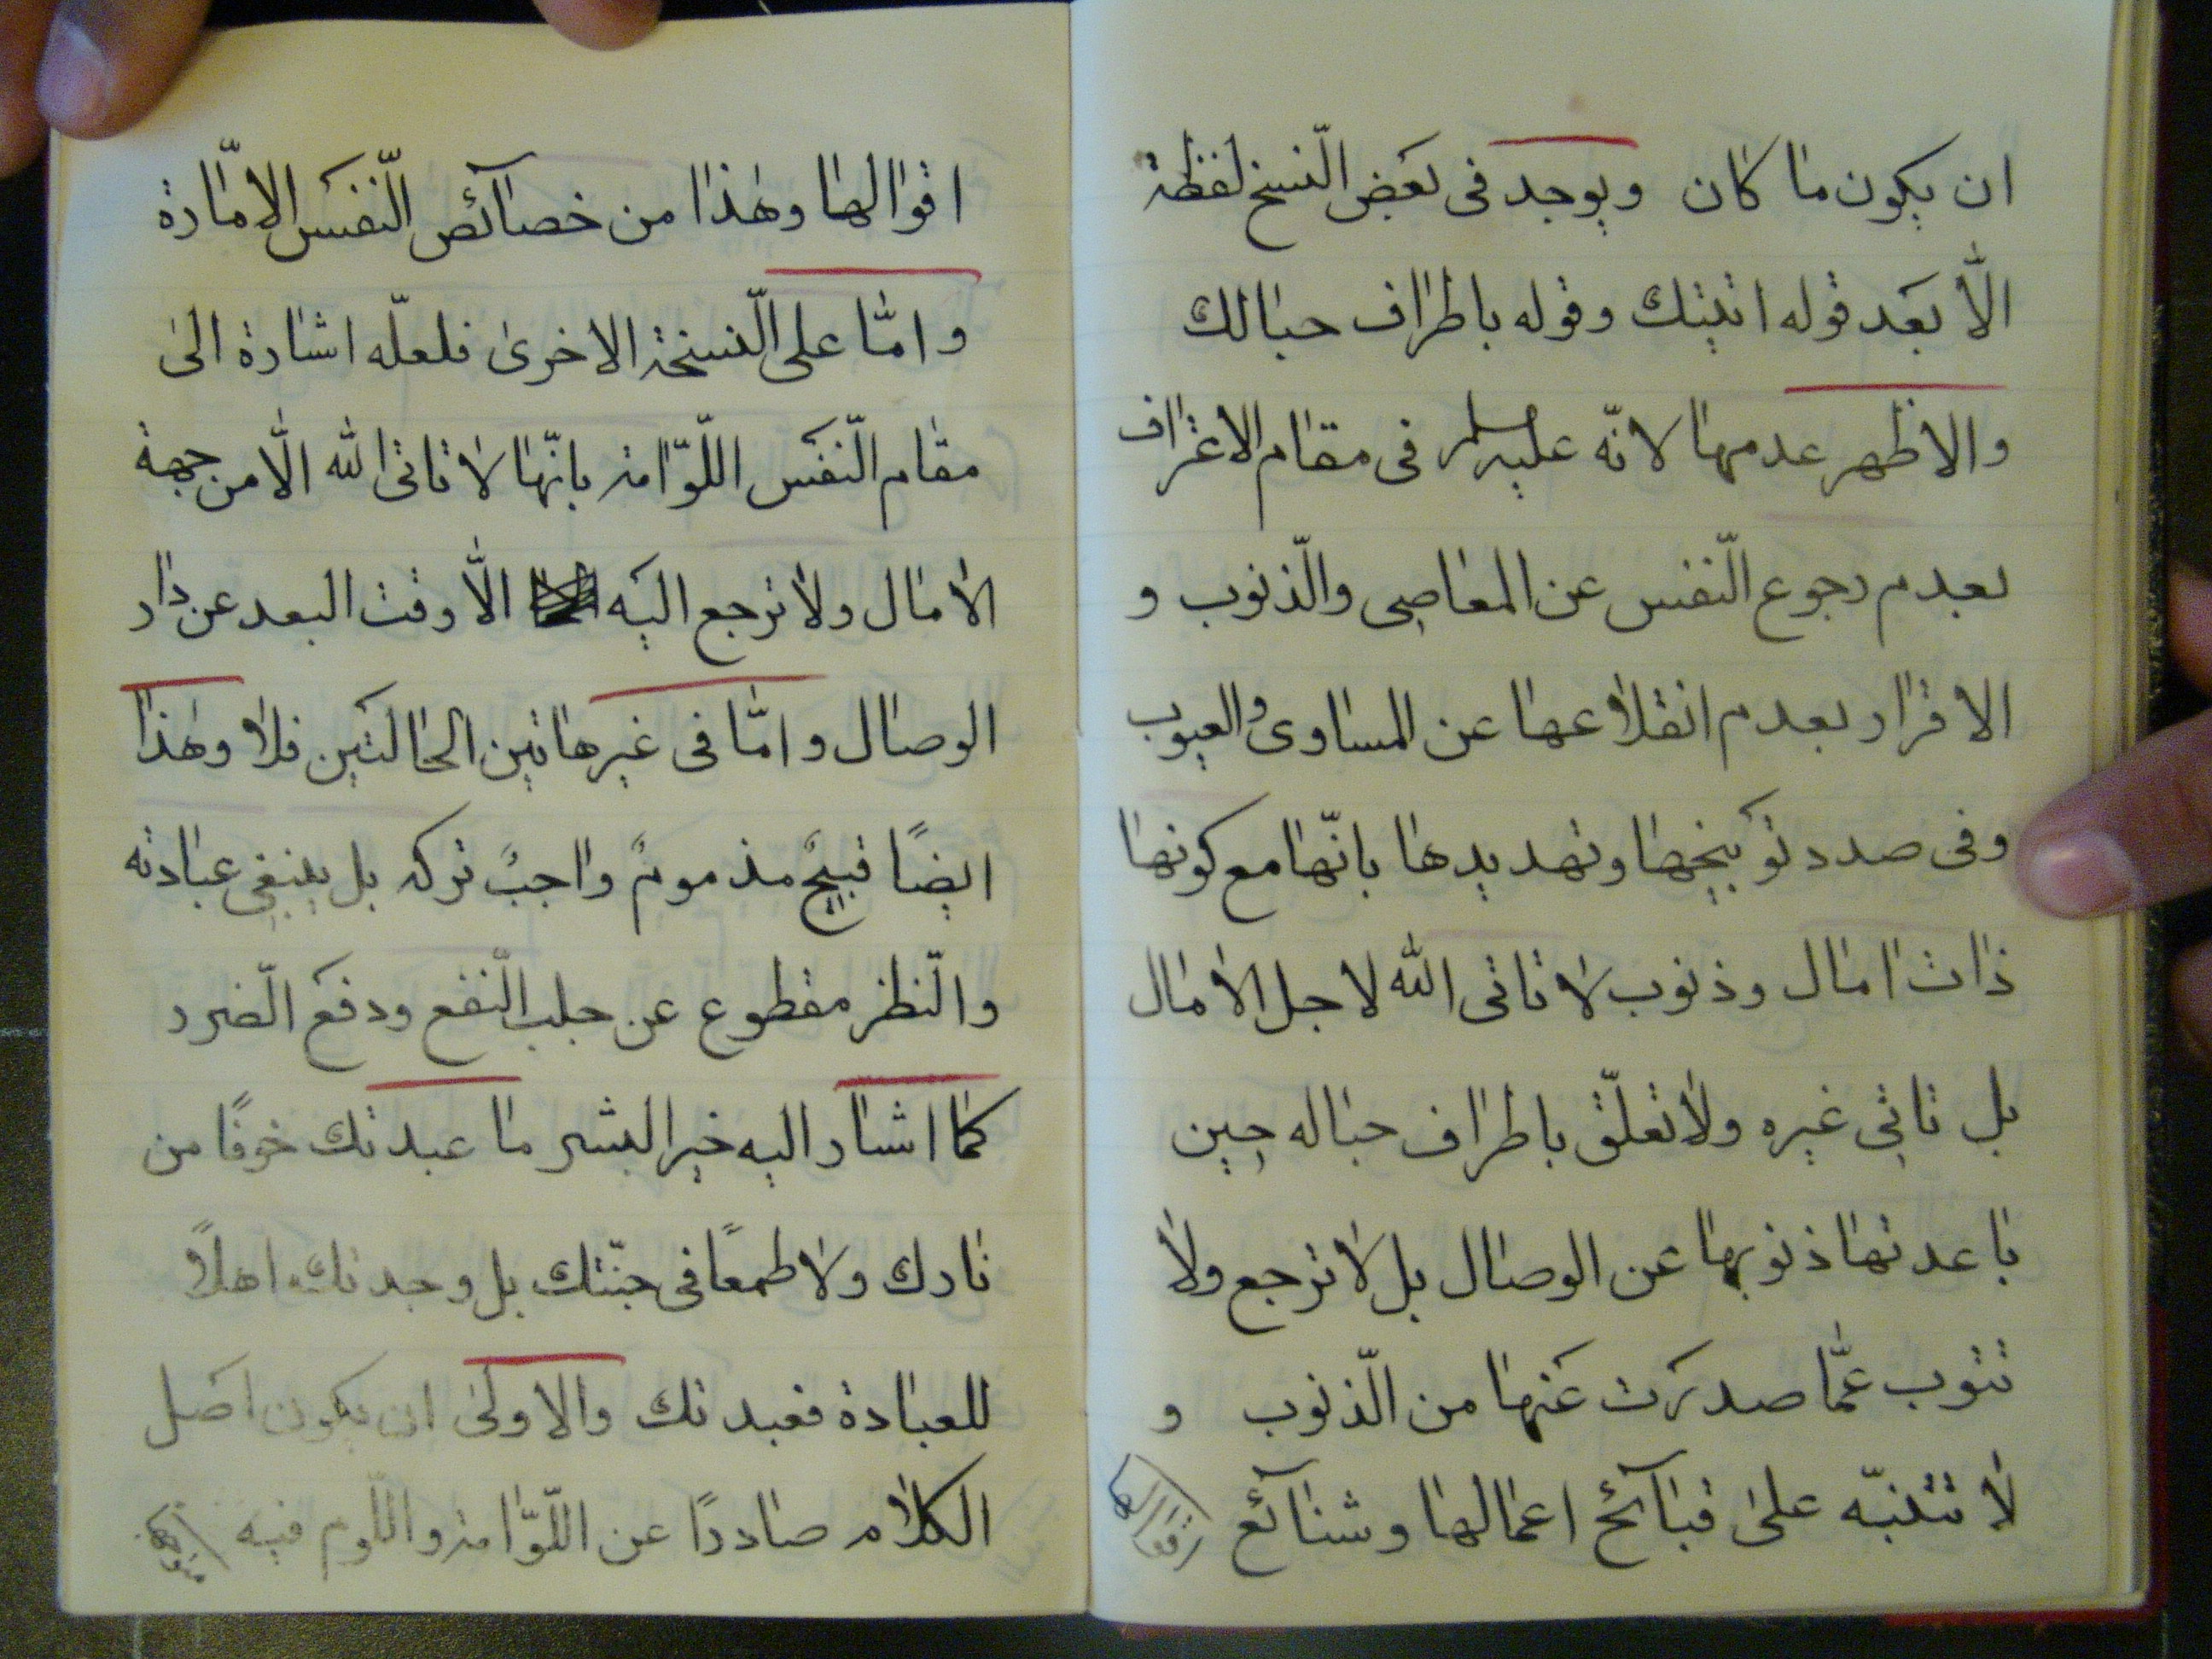 ان يكون ما كان ويوجد فى بعض النّسخ لفظة
الّا بعد قوله اتيتك وقوله باطراف حبالك
والاظهر عدمها لانّه عليه سلم فى مقام الاعتراف
بعدم رجوع النّفس عن المعاصى والذّنوب و
الاقرار بعدم انقلاعها عن المساوى والعيوب
وفى صدد توبيخها وتهديدها بانّها مع كونها
ذات امال وذنوب لا تاتى الله لاجل الامال
بل تاتى غيره ولا تعلّق باطراف حباله حين
باعدتها ذنوبها عن الوصال بل لا ترجع ولا
تتوب عمّا صدرت عنها من الذّنوب و
لا تتنبّه على قبآئح اعمالها وشنآئع
اقوالها
اقوالها وهذا من خصآئص النّفس الامّارة
وامّا على النّسخة الاخرى فلعلّه اشارة الى
مقام النّفس اللّوّامة بانّها لا تاتى الله الّا من جهة
الامال ولا ترجع اليه الّا وقت البعد عن دار
الوصال وامّا فى غير هاتين الحالتين فلا وهذا
ايضًا قبيحٌ مذمومٌ واجبٌ تركه بل ينبغى عبادته
والنّظر مقطوع عن جلب النّفع ودفع الضّرر
كما اشار اليه خير البشر ما عبدتك خوفًا من
نارك ولا طمعًا فى جنّتك بل وجدتك اهلًا
للعبادة فعبدتك والاولى ان يكون اصل
الكلام صادرًا عن اللّوّامة واللّوم فيه